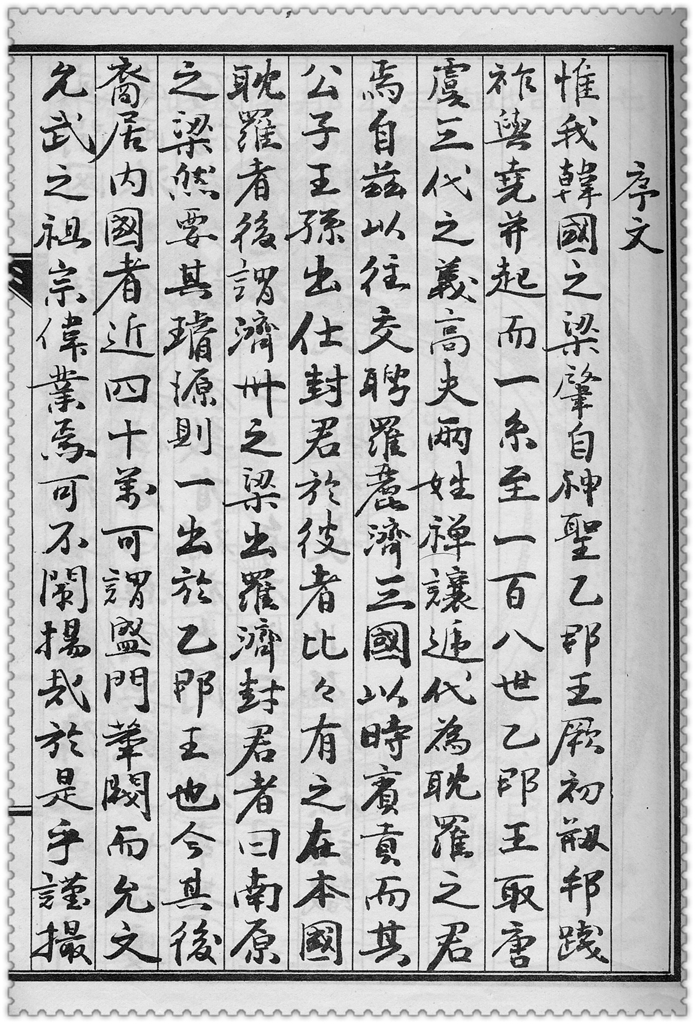 序文
惟我韓國之梁肇自神聖乙那王厥初剏邦踐
祚與堯并起而一系至一百八世乙那王取唐
虞三代之義高夫兩姓禪讓遞代為耽羅之君
焉自茲以往交聘羅麗濟三國以時賓貢而其
公子王孫出仕封君於彼者比々有之在本國
耽羅者後謂濟州之梁出羅濟封君者曰南原
之梁然要其璿源則一出於乙那王也今其後
裔居內國者近四十萬可謂盛門華閥而允文
允武之祖宗偉業焉可不闡揚哉於是乎謹撮